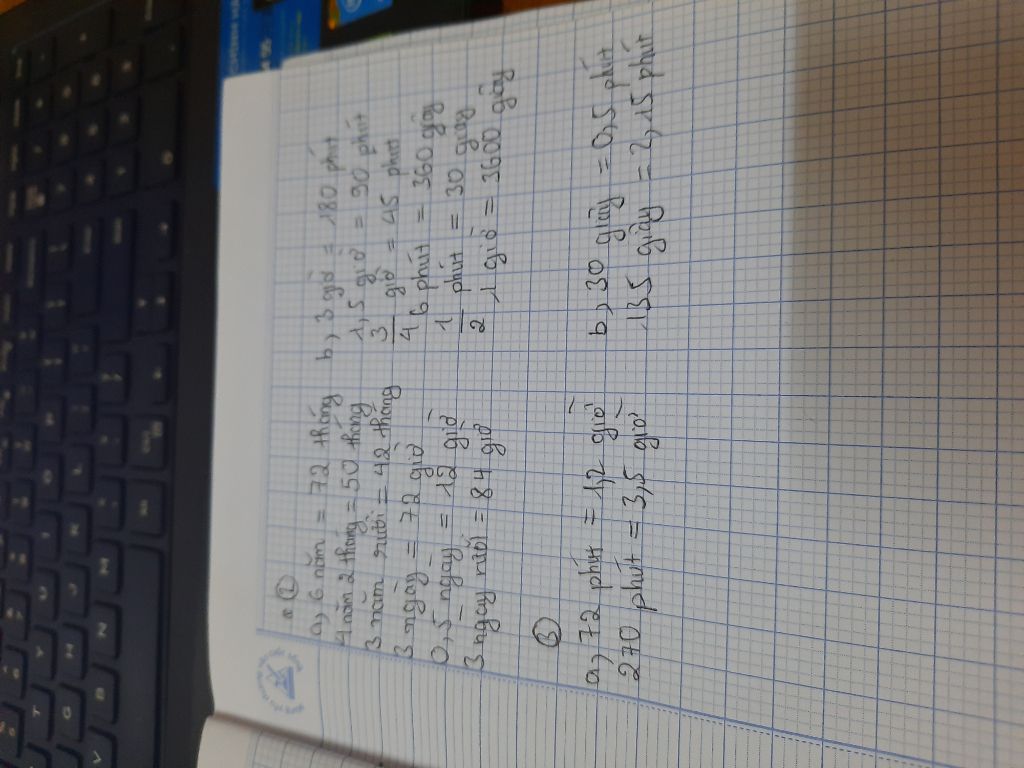 ②
a, 6 năm = 72 tháng
4 năm 2 tháng = 50 tháng
3 năm rưỡi = 42 tháng
3 ngày = 72 giờ
0,5 ngày = 12 giờ
3 ngày rưỡi = 84 giờ
b, 3 giờ = 180 phút
1,5 giờ = 90 phút
3/4 giờ = 45 phút
6 phút = 360 giây
1/2 phút = 30 giây
1 giờ = 3600 giây
③
a, 72 phút = 1,2 giờ
270 phút = 3,5 giờ
b, 30 giây = 0,5 phút
135 giây = 2,15 phút